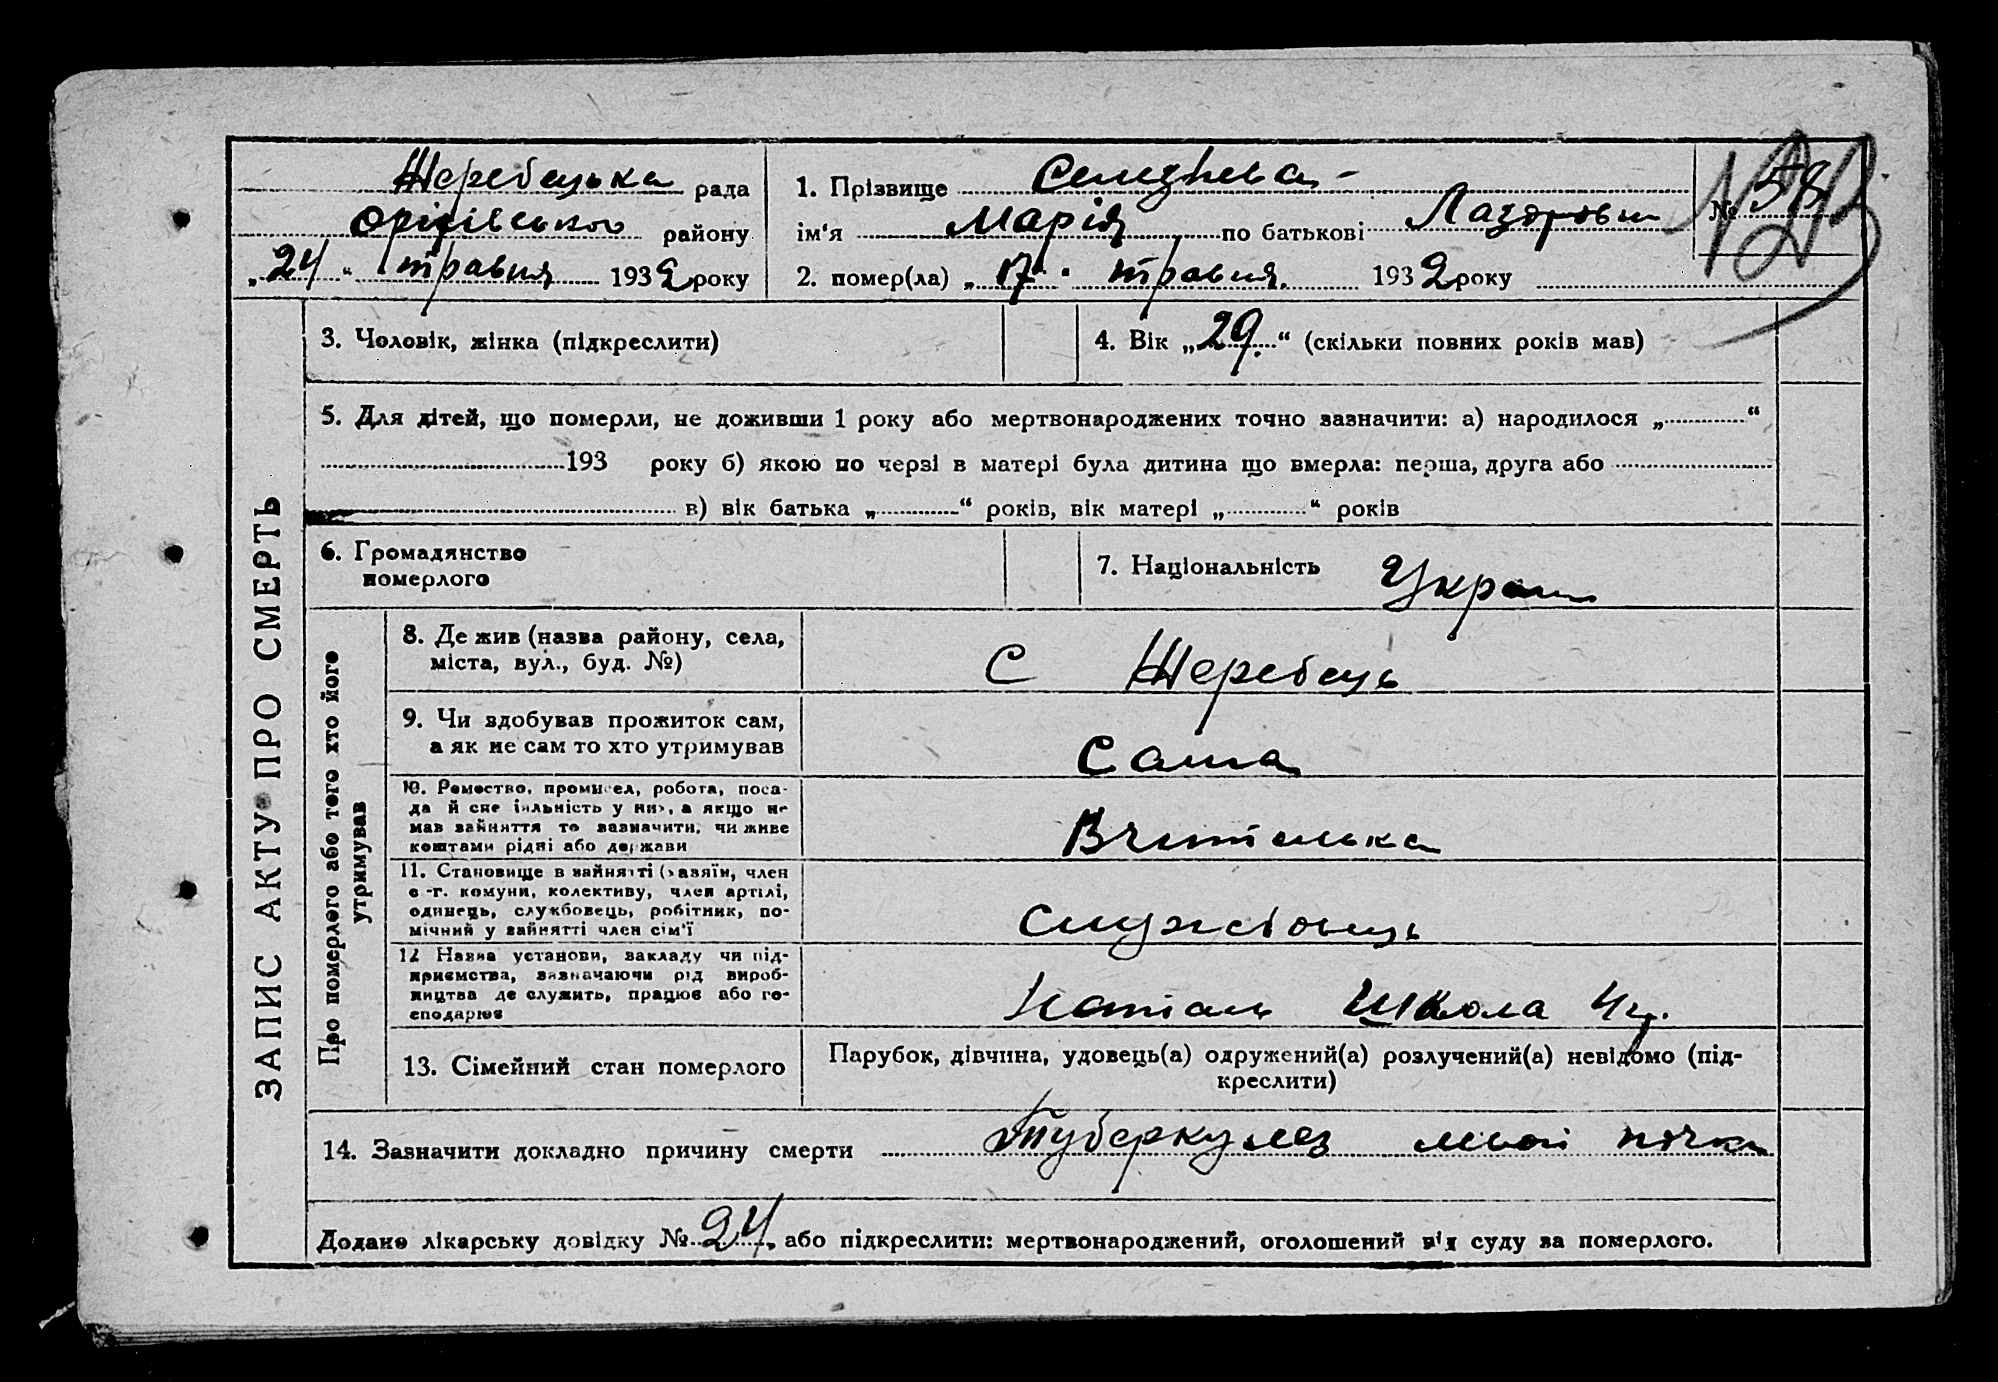 Жеребецька рада
Оріхівського району
„24" травня 1932 року
1. Прізвище
ім'я Марія по батькові
2. помер(ла) „17" травня 1932 року
№ 58
ЗАПИС АКТУ ПРО СМЕРТЬ
3. Чоловік, жінка (підкреслити)
4. Вік „29" (скільки повних років мав)
5. Для дітей, що померли, не доживши 1 року або мертвонароджених точно зазначити: а) народилося „ “
193 року б) якою по черзі в матері була дитина що вмерла: перша, друга або
в) вік батька „ “ років, вік матері „ “ років
6. Громадянство
померлого
7. Національність Украін
Про померлого або того хто його
утримував
8. Де жив (назва району, села,
міста, вул., буд. №)
С Жеребець
9. Чи здобував прожиток сам,
а як не сам то хто утримував
Сама
10. Ремество, промисел, робота, поса-
да й спеціяльність у них, а якщо не
мав зайняття то зазначити, чи живе
коштами рідні або держави
Вчителька
11. Становище в зайнятті (хазяїн, член
с.-г. комуни, колективу, член артілі,
одинець, службовець, робітник, по-
мічний у зайнятті член сім'ї
службовець
12 Назва установи, закладу чи під-
приємства, зазначаючи рід вироб-
ництва де служить, працює або го-
сподарює
Школа
13. Сімейний стан померлого
Парубок, дівчина, удовець(а) одружений(а) розлучений(а) невідомо (під-
креслити)
14. Зазначити докладно причину смерти Туберкулез
Додано лікарську довідку № 24, або підкреслити: мертвонароджений, оголошений від суду за померлого.